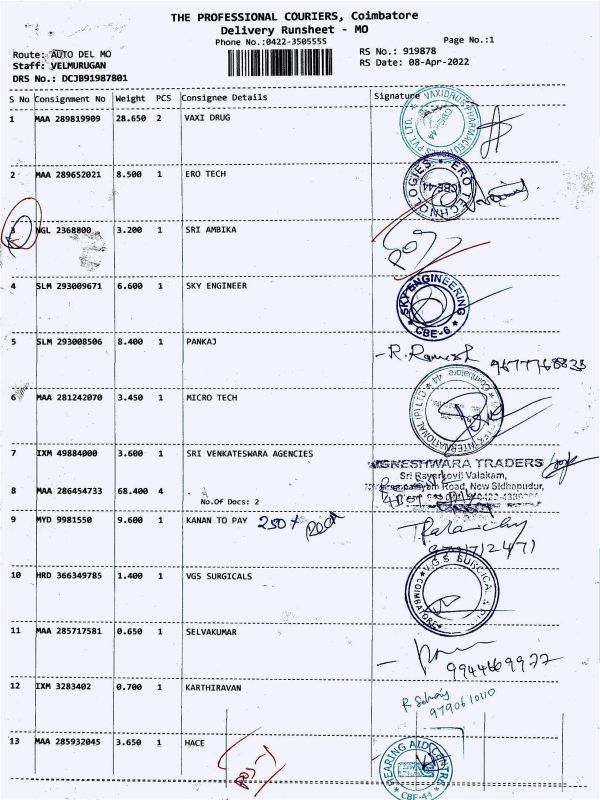 THE PROFESSIONAL COURIERS, Coimbatore
Delivery Runsheet - MO
Phone No.:0422-3505555
Page No.:1
Route: AUTO DEL MO
RS No.: 919878
Staff: VELMURUGAN
RS Date: 08-Apr-2022
DRS No.: DCJB91987801
S No Consignment No Weight PCS Consignee Details Signature
1 MAA 289819909 28.650 2 VAXI DRUG
2 MAA 289652021 8.500 1 ERO TECH
ERO TECHNOLOGIES CBE-44
3 NGL 2368800 3.200 1 SRI AMBIKA
4 SLM 293009671 6.600 1 SKY ENGINEER
SKY ENGINEERING CBE-6
5 SLM 293008506 8.400 1 PANKAJ
R. Ramesh
6 MAA 281242070 3.450 1 MICRO TECH
7 IXM 49884000 3.600 1 SRI VENKATESWARA AGENCIES
GNESHWARA TRADERS
Sri Rayarkovil Valakam,
Road, New Sidhapudur,
8 MAA 286454733 68.400 4 .
No.Of Docs: 2
9 MYD 9981550 9.600 1 KANAN TO PAY 250
10 HRD 366349785 1.400 1 VGS SURGICALS
V.G.S SURGICAL
COIMBATORE
11 MAA 285717581 0.650 1 SELVAKUMAR
9944669977
12 IXM 3283402 0.700 1 KARTHIRAVAN
9790610110
13 MAA 285932045 3.650 1 HACE
HEARING AID CENTRE
CBE-44